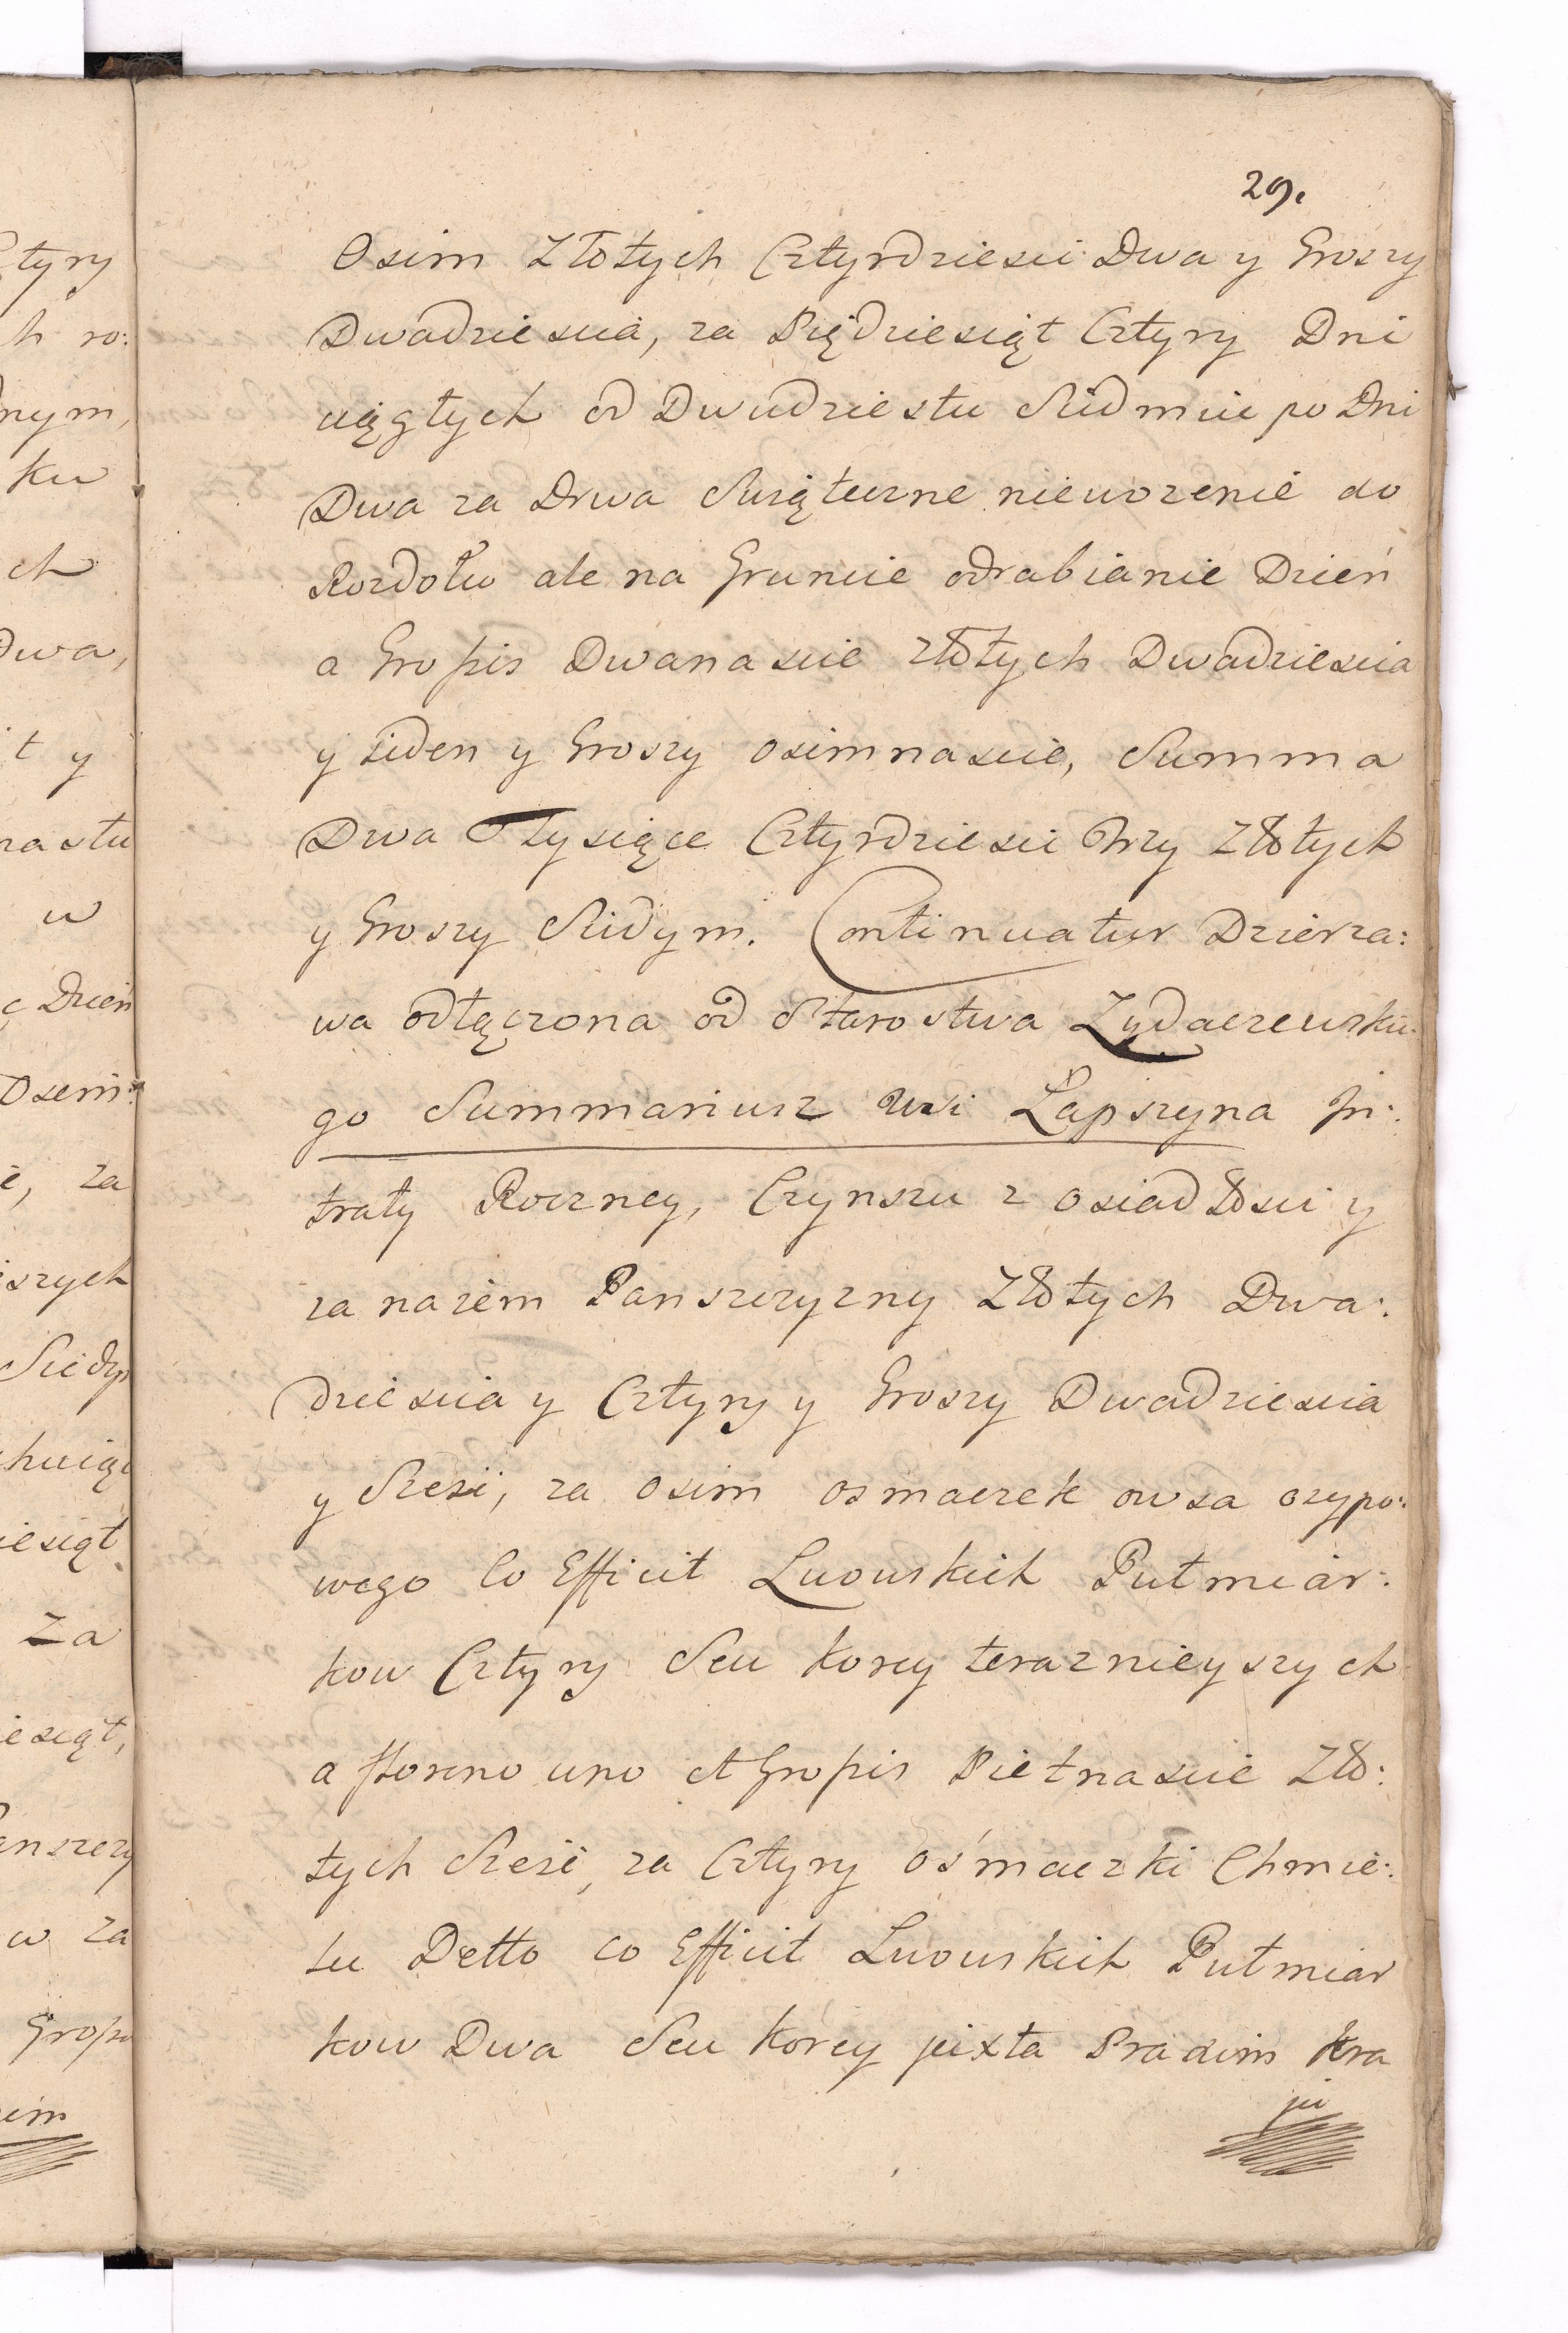 29.
Osim Złotych Cztyrdziesci Dwa y Groszy
Dwadziescia, za Piędziesiąt Cztyry Dni
ciągłych od Dwudziestu Siedmiu po Dni
Dwa za Drwa Swiąteczne niewozenie do
Rozdołu ale na Gruncie odrabianie Dzień
a Grossis Dwanascie złotych Dwadziescia
y Jeden y Groszy osimnascie, Summa
Dwa Tysiące Cztyrdziesci Trzy Złotych
y Groszy Siedym. Continuatur Dzierza:
wa odłączona od Starostwa Zydaczewskie:
go Summariusz Wsi Łapszyna In:
traty Roczney, Czynszu z osiadłosci y
za naiem Panszczyzny Złotych Dwa:
dziescia y Cztyry y Groszy Dwadziescia
y Szesc, za osim osmaczek owsa czypo:
wego Co Efficit Lwowskich Pułmiar:
kow Cztyry Seu korcy teraznieyszych
a floreno uno et Grossis Pietnascie Zło:
tych Szesc, za Cztyry ośmaczki Chmie:
lu Detto co Efficit Lwowskich Pułmiar
kow Dwa Seu korcy juxta Praxim kra
ju
Cztyry
h ro:
dnym,
ku
ch
Dwa,
t y
nastu
w
Dzień
Osem:
ie, za
iszych
Siedy
iesiąt
Za
iesiąt,
anszczy
w za
Gross
sim